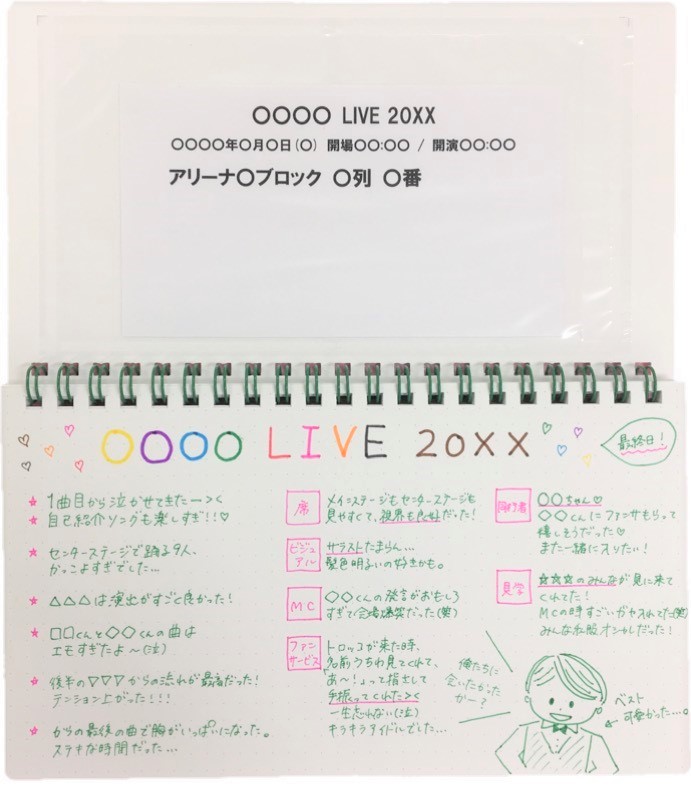 〇〇〇〇 LIVE 20XX
〇〇〇〇年〇月〇日(〇) 開場〇〇:〇〇 / 開演〇〇:〇〇
アリーナ〇ブロック 〇列 〇番
〇〇〇〇 LIVE 20XX
最終日!
☆ 1曲目から泣かせてきた―><
☆ 自己紹介ソングも楽しすぎ!!♡
☆ センターステージで踊る9人、
かっこよすぎでした…
☆ △△△は演出がすごく良かった!
☆ □□くんと◇◇くんの曲は
エモすぎたよ~(泣)
☆ 後半の▽▽▽からの流れが最高だった!
テンション上がった!!!
☆ からの最後の曲で胸がいっぱいになった。
ステキな時間だった…
席
メインステージもセンターステージも
見やすくて、視界も良好だった!
ビジュアル
サラストたまらん…
髪色明るいの好きかも。
MC
◇◇くんの発言がおもしろ
すぎて会場爆笑だった(笑)
ファンサービス
トロッコが来た時、
名前うちわ見てくれて、
あ~!って指差して
手振ってくれた><
一生忘れない(泣)
キラキラアイドルでした…
同行者
〇〇ちゃん♡
◇◇くんにファンサもらって
嬉しそうだった♡
また一緒に入りたい!
見学
☆☆☆のみんなが見に来て
くれてた!
MCの時すごいガヤ入れてた(笑)
みんな私服オシャレだった!
俺たちに
会いたかった
かー?
ベスト
可愛かった…。